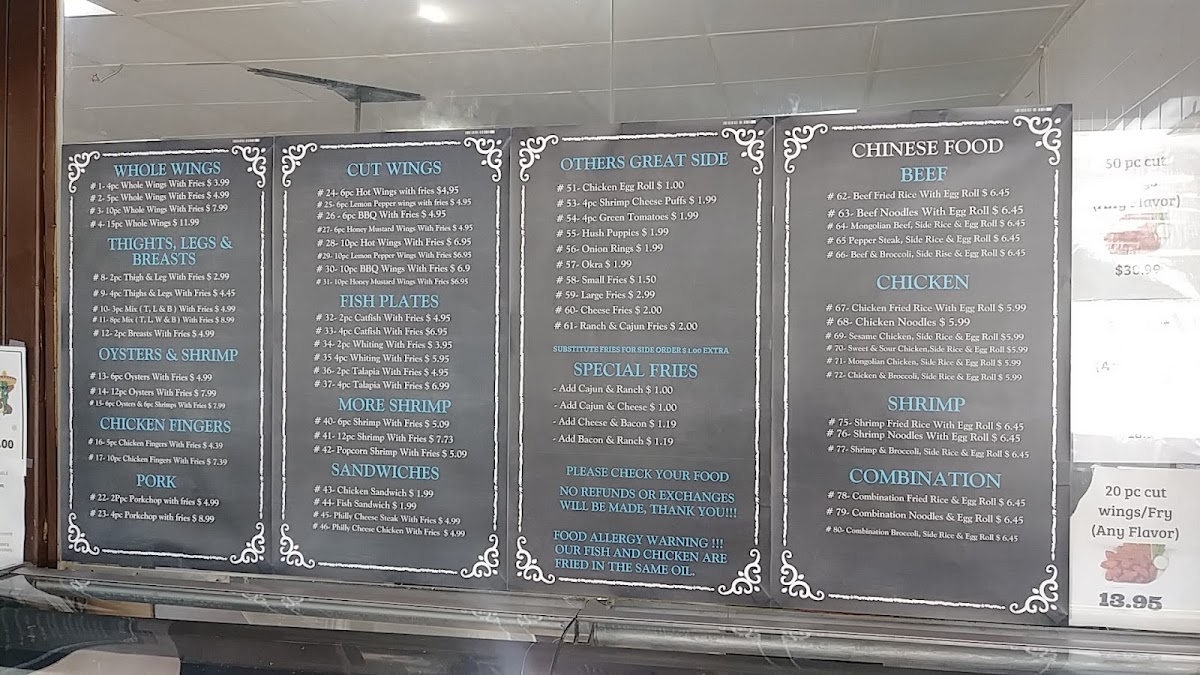 WHOLE WINGS
# 1- 4pc Whole Wings With Fries $ 3.99
# 2- 5pc Whole Wings With Fries $ 4.99
# 3- 10pc Whole Wings With Fries $ 7.99
# 4- 15pc Whole Wings $ 11.99
THIGHTS, LEGS &
BREASTS
# 8- 2pc Thigh & Leg With Fries $ 2.99
# 9- 4pc Thighs & Legs With Fries $ 4.45
# 10- 3pc Mix ( T, L & B ) With Fries $ 4.99
# 11- 8pc Mix ( T, L, W & B ) With Fries $ 8.99
# 12- 2pc Breasts With Fries $ 4.99
OYSTERS & SHRIMP
# 13- 6pc Oysters With Fries $ 4.99
# 14- 12pc Oysters With Fries $ 7.99
# 15- 6pc Oysters & 6pc Shrimps With Fries $ 7.99
CHICKEN FINGERS
# 16- 5pc Chicken Fingers With Fries $ 4.39
# 17- 10pc Chicken Fingers With Fries $ 7.39
PORK
# 22- 2Ppc Porkchop with fries $ 4.99
# 23- 4pc Porkchop with fries $ 8.99
CUT WINGS
# 24- 6pc Hot Wings with fries $4.95
# 25- 6pc Lemon Pepper wings with fries $ 4.95
# 26 - 6pc BBQ With Fries $ 4.95
#27- 6pc Honey Mustard Wings With Fries $ 4.95
# 28- 10pc Hot Wings With Fries $ 6.95
#29- 10pc Lemon Pepper Wings With Fries $6.95
# 30- 10pc BBQ Wings With Fries $ 6.9
# 31- 10pc Honey Mustard Wings With Fries $6.95
FISH PLATES
# 32- 2pc Catfish With Fries $ 4.95
# 33- 4pc Catfish With Fries $6.95
# 34- 2pc Whiting With Fries $ 3.95
# 35 4pc Whiting With Fries $ 5.95
# 36- 2pc Talapia With Fries $ 4.95
# 37- 4pc Talapia With Fries $ 6.99
MORE SHRIMP
# 40- 6pc Shrimp With Fries $ 5.09
# 41- 12pc Shrimp With Fries $ 7.73
# 42- Popcorn Shrimp With Fries $ 5.09
SANDWICHES
# 43- Chicken Sandwich $ 1.99
# 44- Fish Sandwich $ 1.99
# 45- Philly Cheese Steak With Fries $ 4.99
# 46- Philly Cheese Chicken With Fries $ 4.99
OTHERS GREAT SIDE
# 51- Chicken Egg Roll $ 1.00
# 53- 4pc Shrimp Cheese Puffs $ 1.99
# 54- 4pc Green Tomatoes $ 1.99
# 55- Hush Puppies $ 1.99
# 56- Onion Rings $ 1.99
# 57- Okra $ 1.99
# 58- Small Fries $ 1.50
# 59- Large Fries $ 2.99
# 60- Cheese Fries $ 2.00
# 61- Ranch & Cajun Fries $ 2.00
SUBSTITUTE FRIES FOR SIDE ORDER $ 1.00 EXTRA
SPECIAL FRIES
- Add Cajun & Ranch $ 1.00
- Add Cajun & Cheese $ 1.00
- Add Cheese & Bacon $ 1.19
- Add Bacon & Ranch $ 1.19
PLEASE CHECK YOUR FOOD
NO REFUNDS OR EXCHANGES
WILL BE MADE, THANK YOU!!!
FOOD ALLERGY WARNING !!!
OUR FISH AND CHICKEN ARE
FRIED IN THE SAME OIL.
CHINESE FOOD
BEEF
# 62- Beef Fried Rice With Egg Roll $ 6.45
# 63- Beef Noodles With Egg Roll $ 6.45
# 64- Mongolian Beef, Side Rice & Egg Roll $ 6.45
# 65 Pepper Steak, Side Rice & Egg Roll $ 6.45
# 66- Beef & Broccoli, Side Rise & Egg Roll $ 6.45
CHICKEN
# 67- Chicken Fried Rice With Egg Roll $ 5.99
# 68- Chicken Noodles $ 5.99
# 69- Sesame Chicken, Side Rice & Egg Roll $ 5.99
# 70- Sweet & Sour Chicken,Side Rice & Egg Roll $5.99
# 71- Mongolian Chicken, Side Rice & Egg Roll $ 5.99
# 72- Chicken & Broccoli, Side Rice & Egg Roll $ 5.99
SHRIMP
# 75- Shrimp Fried Rice With Egg Roll $ 6.45
# 76- Shrimp Noodles With Egg Roll $ 6.45
# 77- Shrimp & Broccoli, Side Rice & Egg Roll $ 6.45
COMBINATION
# 78- Combination Fried Rice & Egg Roll $ 6.45
# 79- Combination Noodles & Egg Roll $ 6.45
# 80- Combination Broccoli, Side Rice & Egg Roll $ 6.45
50 pc cut
(Any Flavor)
$30.99
20 pc cut
wings/Fry
(Any Flavor)
13.95
.00